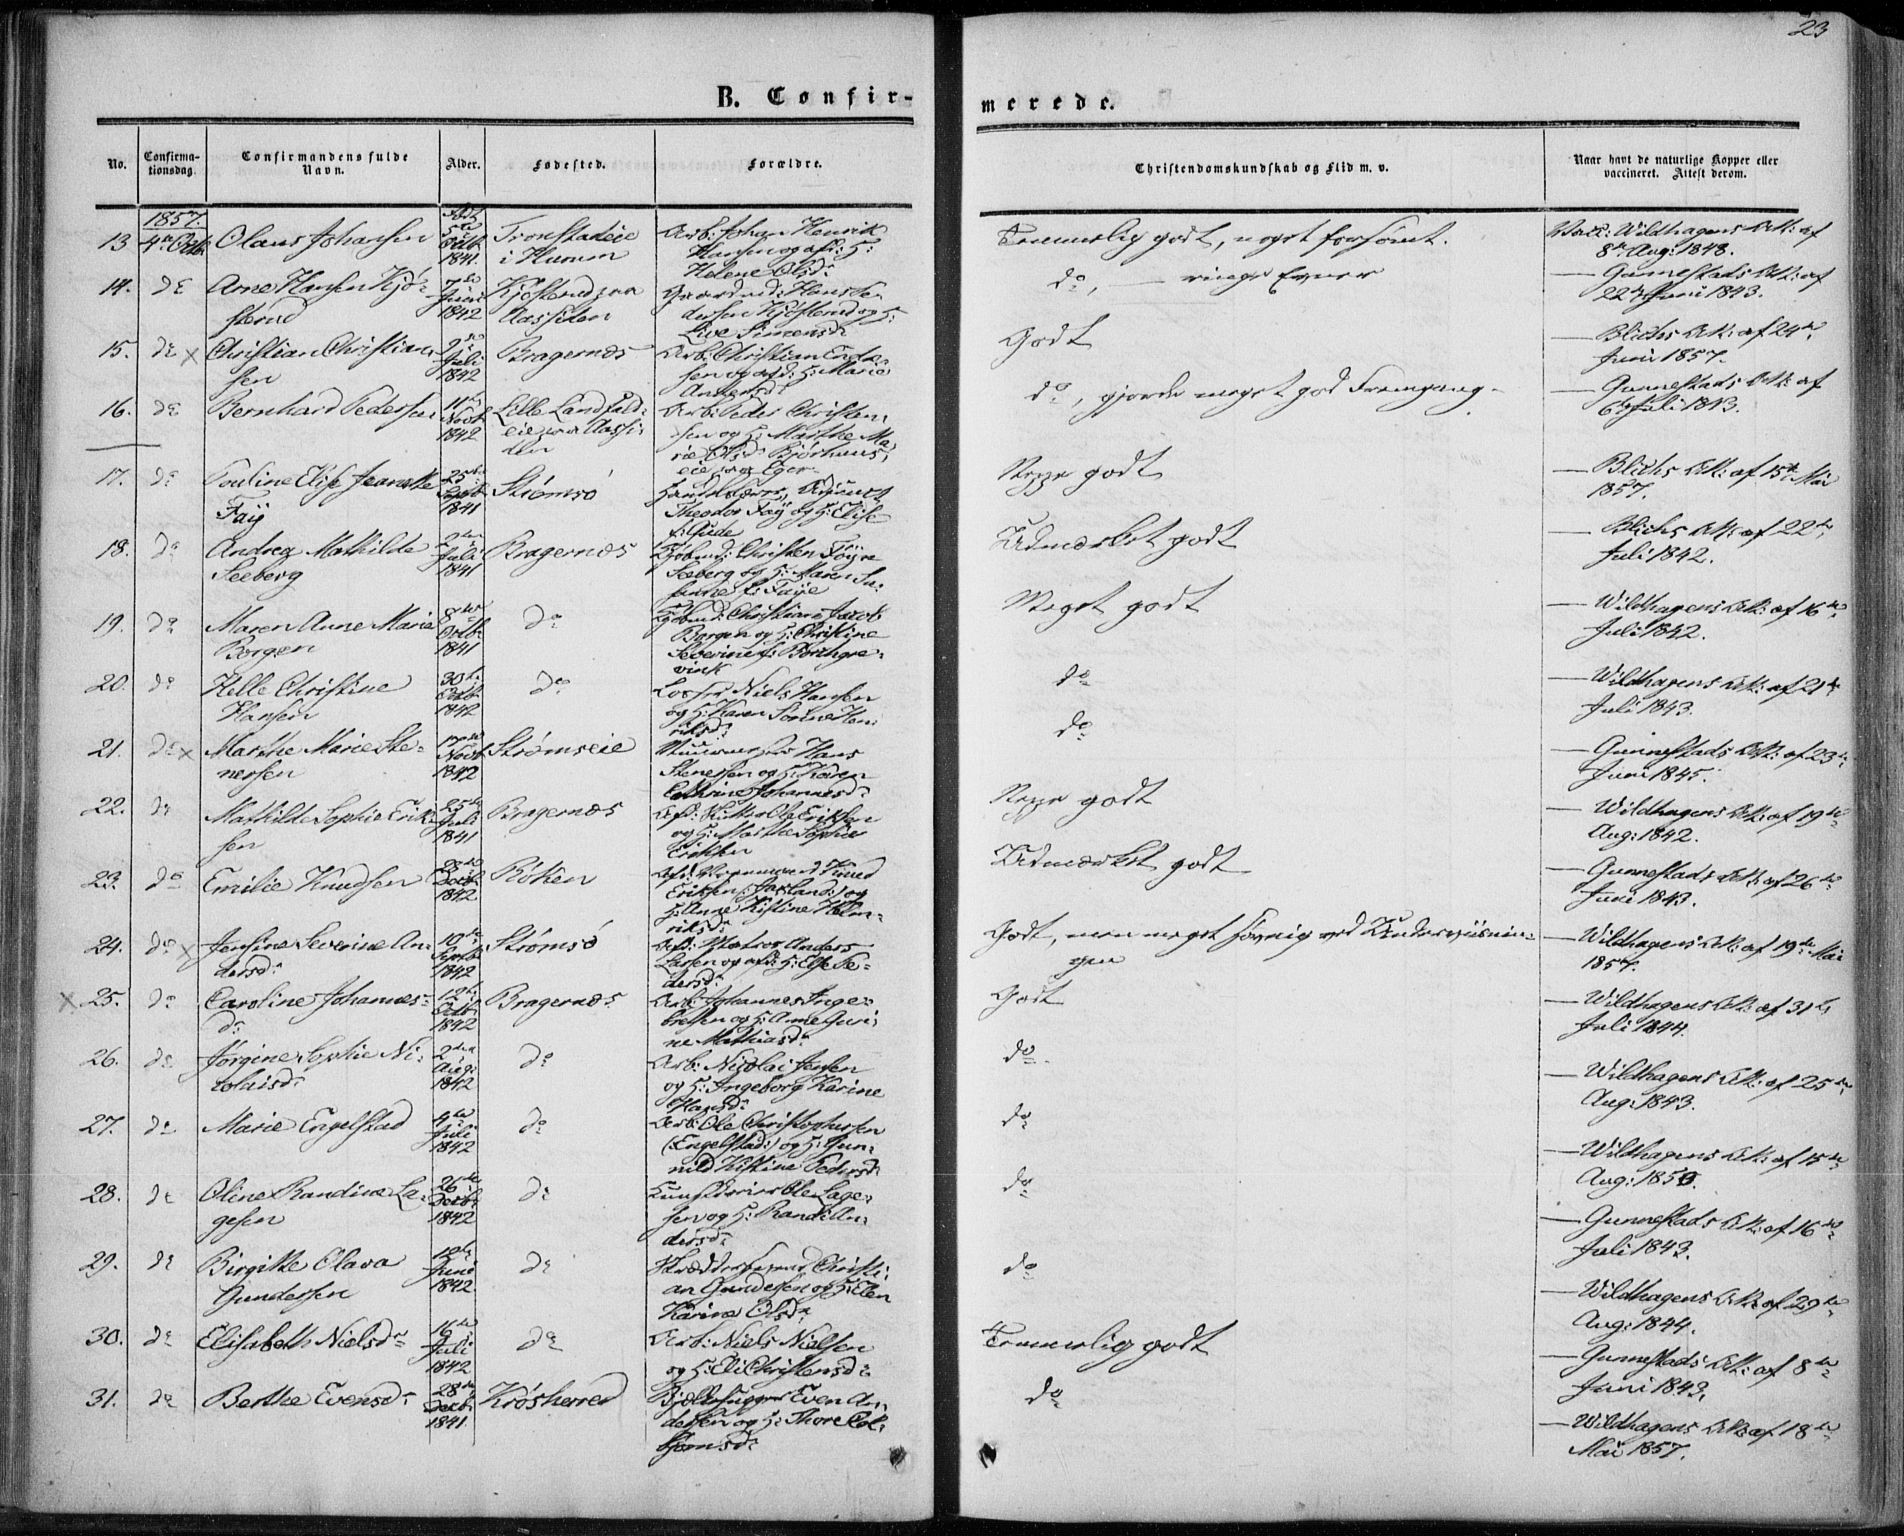 23
B. Confir-
merede.
No.
Confirma-
tionsdag.
Confirmandens fulde
Navn.
Alder.
Fødested.
Forældre.
Christendomskundskab og Flid m. v.
Naar havt de naturlige Kopper eller
vaccineret. Attest derom.
1857.
13 4de Octb. Olaus Johansen
5te
Octb:
1841.
Tronstadeie
i Hurum
Arb: Johan Henrik
Hansen og afd: H:
Helene Olsdr
Temmelig godt, noget forsømt.
Vacc: Wildhagens Att: af
8de Aug: 1848.
14. do Arne Hansen Kjø-
sterud
7de
Juni
1842
Kjøsterud paa
Aassiden
Gaardmd: Hans Pe-
dersen Kjøsterud og H:
Live Simensdr
do, — ringe Evner
— Gunnestads Att: af
22de Juni 1843.
15. do x Christian Christian-
sen
2den
Juli
1842
Bragernæs
Arb: Christian Endre-
sen og afd: H: Marie
Andersdr
Godt
— Blichs Att: af 24de
Juni 1857.
16. do Bernhard Pedersen
11te
Novb
1842
Lille Landfald-
eie paa Aassi-
den
Arb: Peder Christen-
sen og H: Marthe Ma-
rie Olsdr Bjørhuus-
eie paa Eger.
do, gjorde meget god Fremgang.
— Gunnestads Att: af
6te Juli 1843.
17. do Pouline Elise Jeanette
Faÿ
25de
Septb
1841
Strømsø
Theodor Faÿ og H: Elise
f: Gude
Meget godt
— Blichs Att: af 15de Mai
1857.
18. do Andrea Mathilde
Seeberg
2den
Juli
1841
Bragernæs
Kjøbmd: Christen Föyn
Seeberg og H: Maren Su-
sanne f: Faÿe
Udmærket godt
— Blichs Att: af 22de
Juli 1842.
19. do Maren Anne Marie
Borgen
8de
Octb:
1841
do
Kjøbmd: Christian Jacob
Borgen og H: Christine
Severine f: Borchgre-
vink
Meget godt
— Wildhagens Att: af 16de
Juli 1842.
20. do Helle Christine
Hansen
30te
Octb:
1842
do
Lods Niels Hansen
og H: Karen Sonne Hen-
riksdr
do
— Wildhagens Att: af 21de
Juli 1843.
21. do x Marthe Marie Ste-
nersen
17de
Novb
1842
Strømseie
Muurmester Hans
Stenersen og H: Karen
Cathrine Johannesdr
do
— Gunnestads Att: af 23de
Juni 1845.
22. do Mathilde Sophie Erik-
sen
25de
Juli
1841
Bragernæs
Afd: Kudsk Ole Eriksen
og H: Marthe Sophie
Eriksen
Meget godt
— Wildhagens Att: af 19de
Aug: 1842.
23. do Emilie Knudsen
23de
Decb.
1842
Røken
Afd: Vognmand Knud
Eriksen (:Jarland:) og
H: Anne Kistine Hen-
riksdr
Udmærket godt
— Gunnestads Att: af 26de
Juni 1843.
24. do x Jensine Severine An-
dersdr
10de
Septb.
1842
Strømsø
Afd: Matros Anders
Larsen og afd: H: Else Pe-
dersdr
Godt, men meget søvnig ved Underviisnin-
gen
— Wildhagens Att: af 19de Mai
1857.
x 25. do Caroline Johannes-
dr
12te
Octb.
1842
Bragernæs
Arb: Johannes Inge-
bretsen og H: Anne Guri-
ne Mathiasdr
Godt
— Wildhagens Att: af 31te
Juli 1844.
26. do Jørgine Sophie Ni-
colaisdr
2den
Aug:
1842
do
Arb: Nicolai Jensen
og H: Ingeborg Karine
Hansdr
do
— Wildhagens Att: af 25de
Aug: 1843.
27. do Marie Engelstad
4de
Juli
1842
do
Arb: Ole Christophersen
(:Engelstad:) og H: Gun-
nild Kistine Pedersdr
do
— Wildhagens Att: af 15de
Aug: 1850.
28. do Oline Randine La-
gesen
26de
Decb.
1842
do
Ole Lage-
sen og H: Randi An-
dersdr
do
— Gunnestads Att: af 16de
Juli 1843.
29. do Birgitte Olava
Gundersen
12te
Juni
1842.
do
Skræddersvend Christi-
an Gundesen og H: Elen
Karine Olsdr
do
— Wildhagens Att: af 29de
Aug: 1844.
30. do Elisabeth Nielsdr
16de
Juli
1842
do
Arb: Niels Nielsen
og H: Eli Christensdr
Temmelig godt
— Gunnestads Att: af 8de
Juni 1843.
31. do Berthe Evensdr
28de
Decb.
1841.
Krøsherred
Bjælkehugger Even An-
dersen og H: Thore Col-
bjørnsdr
do
— Wildhagens Att: af 18de
Mai 1857.